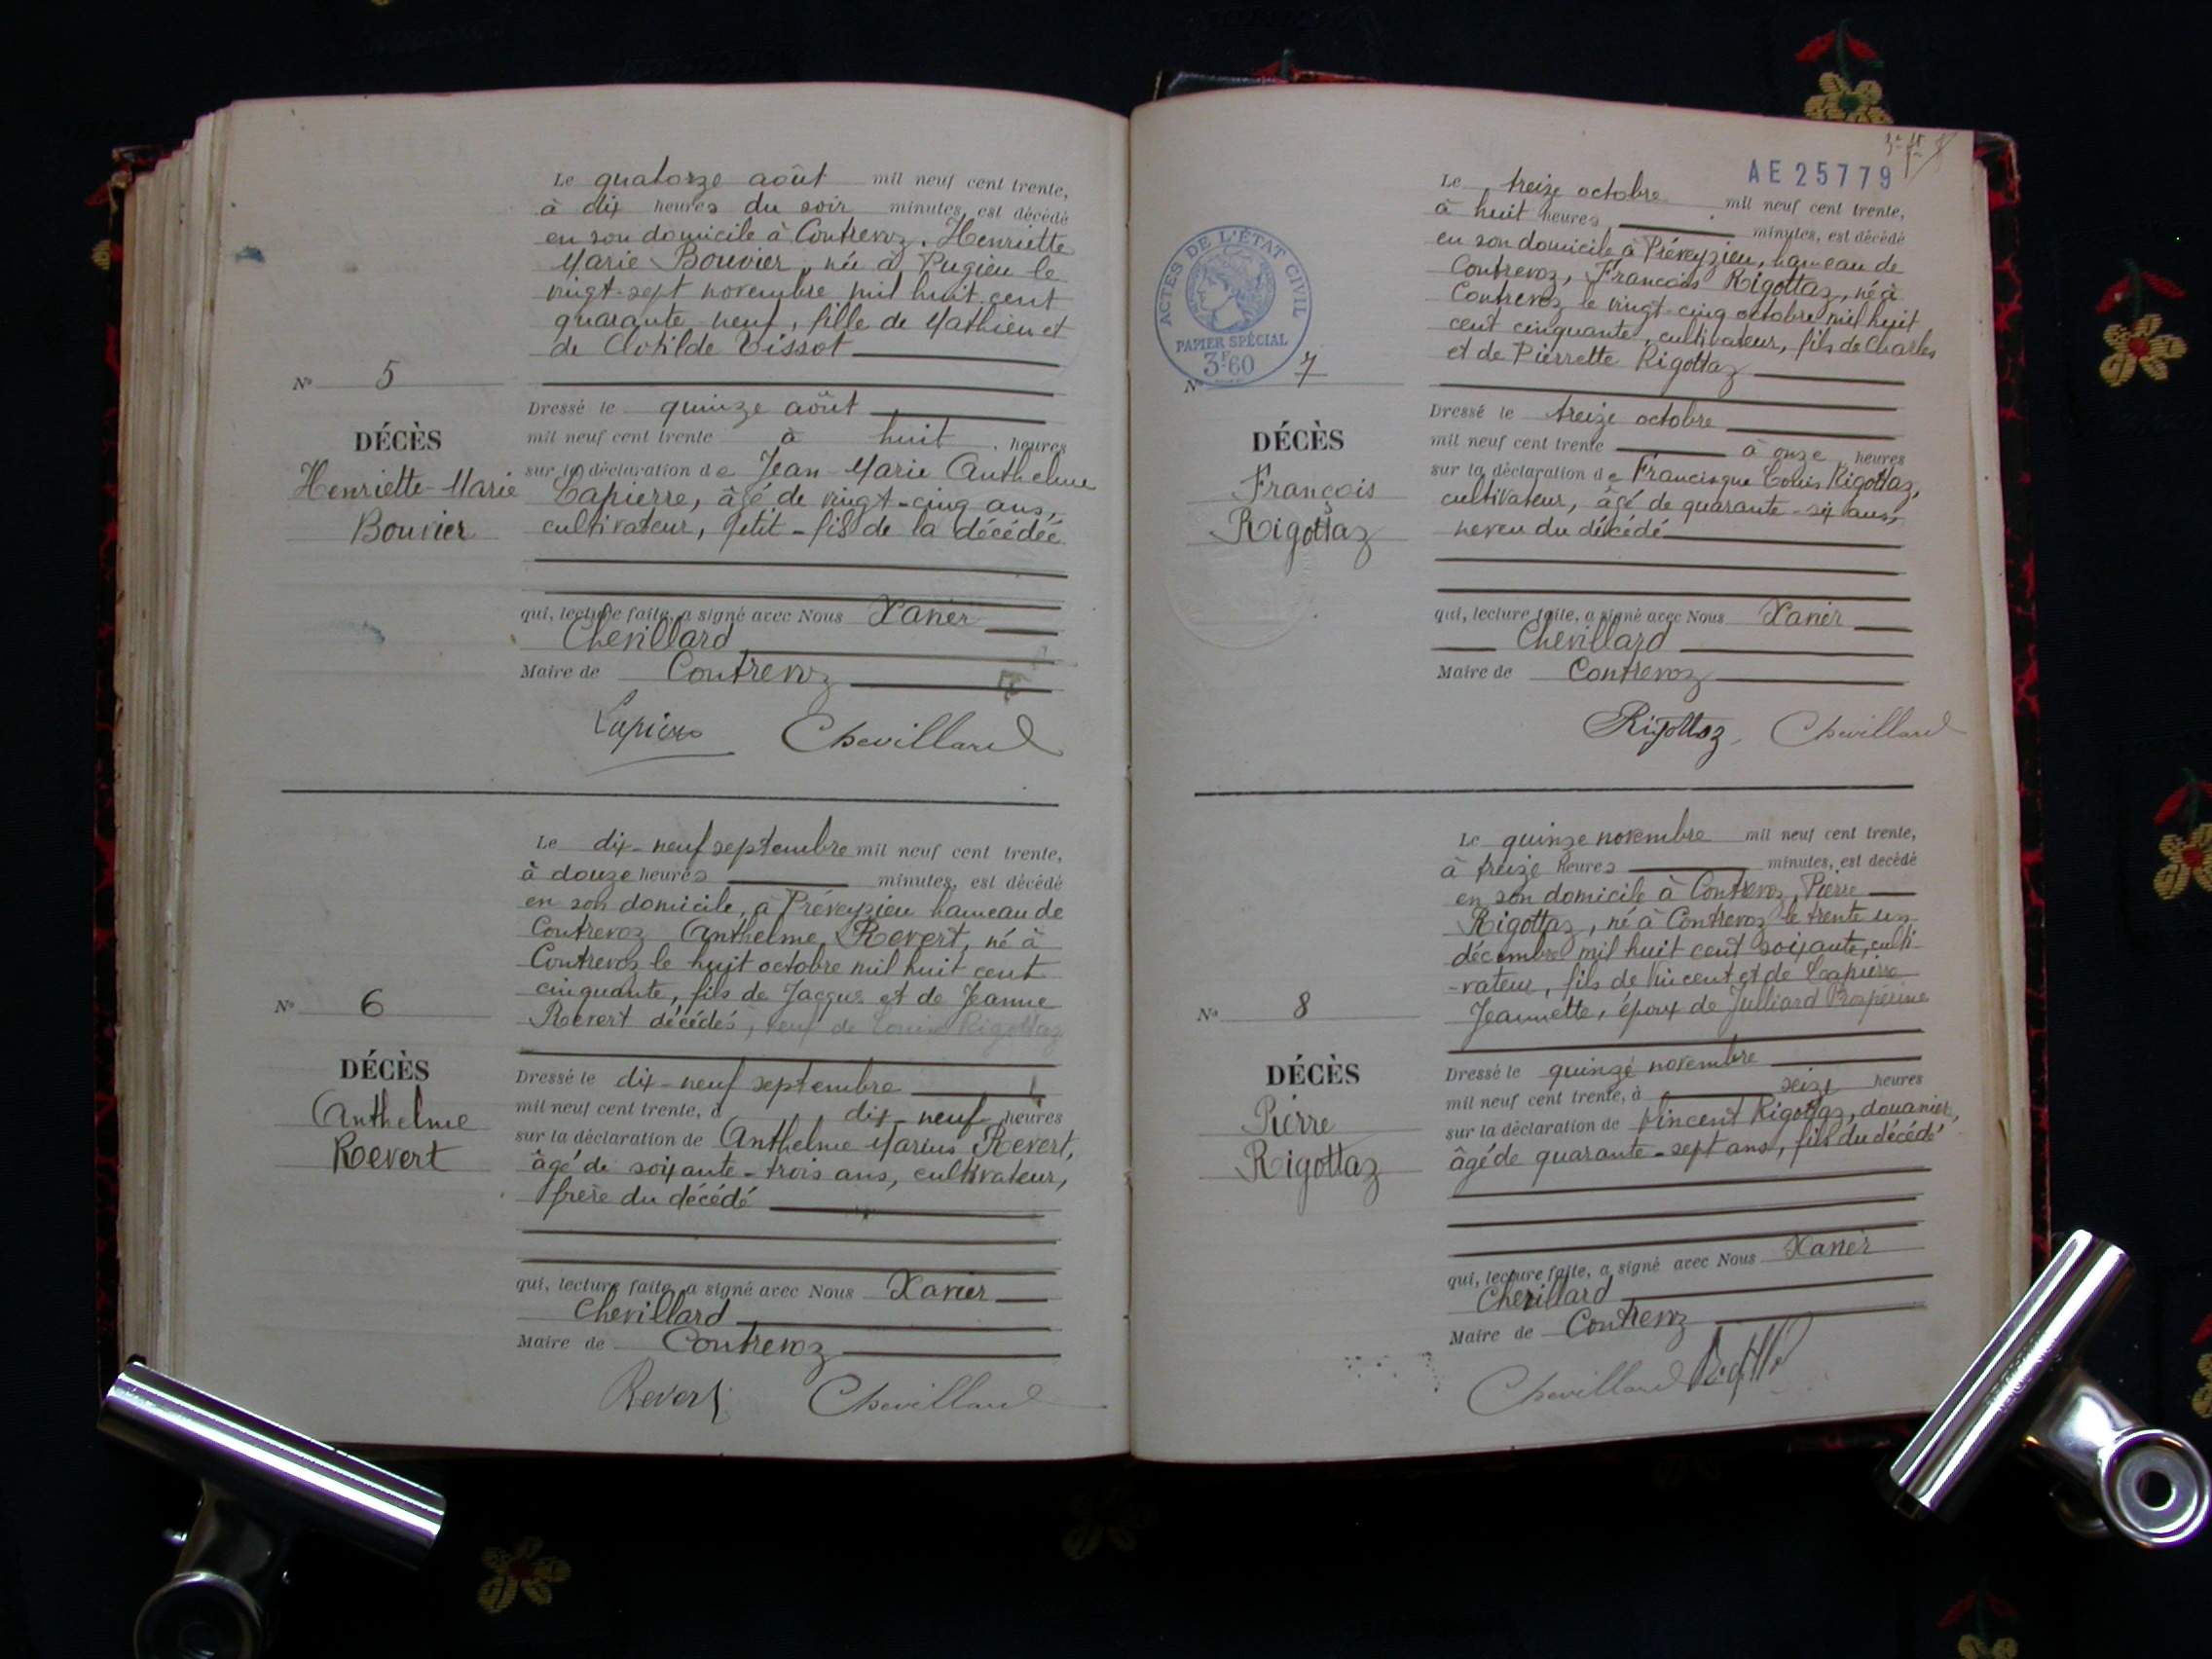 Le quatorze août mil neuf cent trente,
à dix heures du soir minutes, est décédé
en son domicile à Contrevoz, Henriette
Marie Bouvier, née à Pugieu le
vingt-sept novembre mil huit cent
quarante neuf, fille de Mathieu et
de Clotilde Tissot
N° 5
DÉCÈS
Henriette-Marie
Bouvier
Dressé le quinze août
mil neuf cent trente à huit heures
sur la déclaration de Jean-Marie Anthelme
Lapierre, âgé de vingt-cinq ans,
cultivateur, petit-fils de la décédée
qui, lecture faite, a signé avec Nous Xavier
Chevillard
Maire de Contrevoz
Lapierre Chevillard
Le dix-neuf septembre mil neuf cent trente,
à douze heures minutes, est décédé
en son domicile, à Préveyzieu hameau de
Contrevoz Anthelme Revert, né à
Contrevoz le huit octobre mil huit cent
cinquante, fils de Jacques et de Jeanne
Revert décédés, veuf de Louise Rigottaz
N° 6
DÉCÈS
Anthelme
Revert
Dressé le dix-neuf septembre
mil neuf cent trente, à dix-neuf heures
sur la déclaration de Anthelme Marius Revert,
âgé de soixante-trois ans, cultivateur,
frère du décédé
qui, lecture faite, a signé avec Nous Xavier
Chevillard
Maire de Contrevoz
Revert Chevillard
AE 25779
ACTES DE L'ÉTAT CIVIL
PAPIER SPÉCIAL
3F60
Le treize octobre mil neuf cent trente,
à huit heures minutes, est décédé
en son domicile à Préveyzieu, hameau de
Contrevoz, François Rigottaz, né à
Contrevoz le vingt-cinq octobre mil huit
cent cinquante, cultivateur, fils de Charles
et de Pierrette Rigottaz
N° 7
DÉCÈS
François
Rigottaz
Dressé le treize octobre
mil neuf cent trente à onze heures
sur la déclaration de Francisque Louis Rigottaz,
cultivateur, âgé de quarante-six ans,
neveu du décédé
qui, lecture faite, a signé avec Nous Xavier
Chevillard
Maire de Contrevoz
Rigottaz Chevillard
Le quinze novembre mil neuf cent trente,
à treize heures minutes, est decédé
en son domicile à Contrevoz, Pierre
Rigottaz, né à Contrevoz le trente un
décembre mil huit cent soixante, culti
-vateur, fils de Vincent et de Lapierre
Jeannette, époux de Julliard Prospérine
N° 8
DÉCÈS
Pierre
Rigottaz
Dressé le quinze novembre
mil neuf cent trente, à seize heures
sur la déclaration de Vincent Rigottaz, douanier,
âgé de quarante-sept ans, fils du décédé
qui, lecture faite, a signé avec Nous Xavier
Chevillard
Maire de Contrevoz
Chevillard